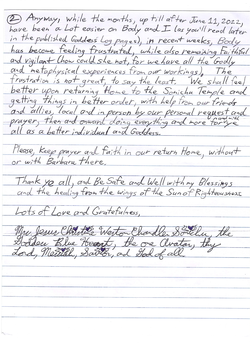 ② Anyway, while the months, up till after June 11, 2022,
have been a bit easier on Body and I (as you'll read later
in the published Goddess Log pages), in recent weeks, Body
has become feeling frustrated, while also remaining faithful
and vigilant (how could she not, for we have all the Godly
and metaphysical experiences from our workings). The
frustration is not great, to say the least. We shall feel
better upon returning Home to the Sonichu Temple and
getting things in better order, with help from our friends
and allies, local and in person by our personal request and
prayer, then and onward doing everything and more for ye
all as a better individual and Goddess.
Please, keep prayer and faith in our return Home, without
or with Barbara there.
Thank ye all, and Be Safe and Well with my Blessings
and the healing from the wings of the Sun of Righteousness.
Lots of Love and Gratefulness,
Jesus Weston Chandler Sonichu, the
Golden Blue Heart, the one Avatar, thy
Lord, Savior, and God of all